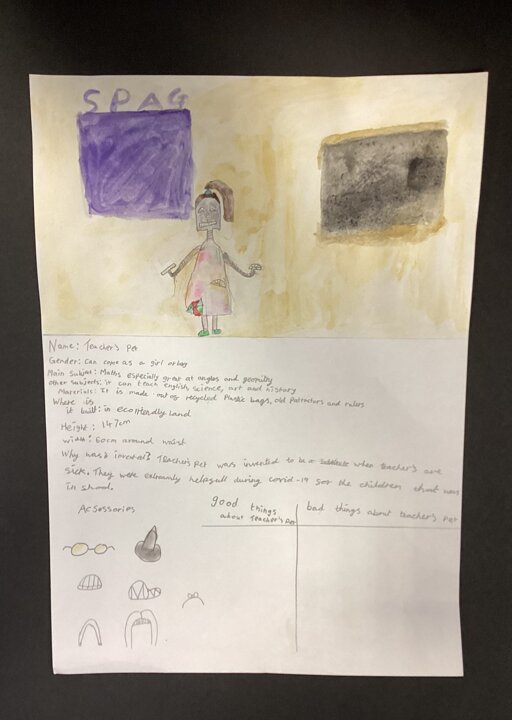 SPAG
Name: Teacher's Pet
Gender: Can come as a girl or boy
Main Subject: Maths especially great at angles and geomitry
other Subjects: it can teach english, science, art and history
Material: It is made out of recycled Plastic bags, old Patractors and rulers
Where is
it built: in ecofriendly Land
Height: 147cm
width: 60cm around waist
Why was it invented? Teacher's Pet was invented to be a when teacher's are
sick. They were extreamly helpfull during covid-19 for the children that was
in shool.
Acsessories
good things
about Teacher's Pet
bad things about teacher's Pet